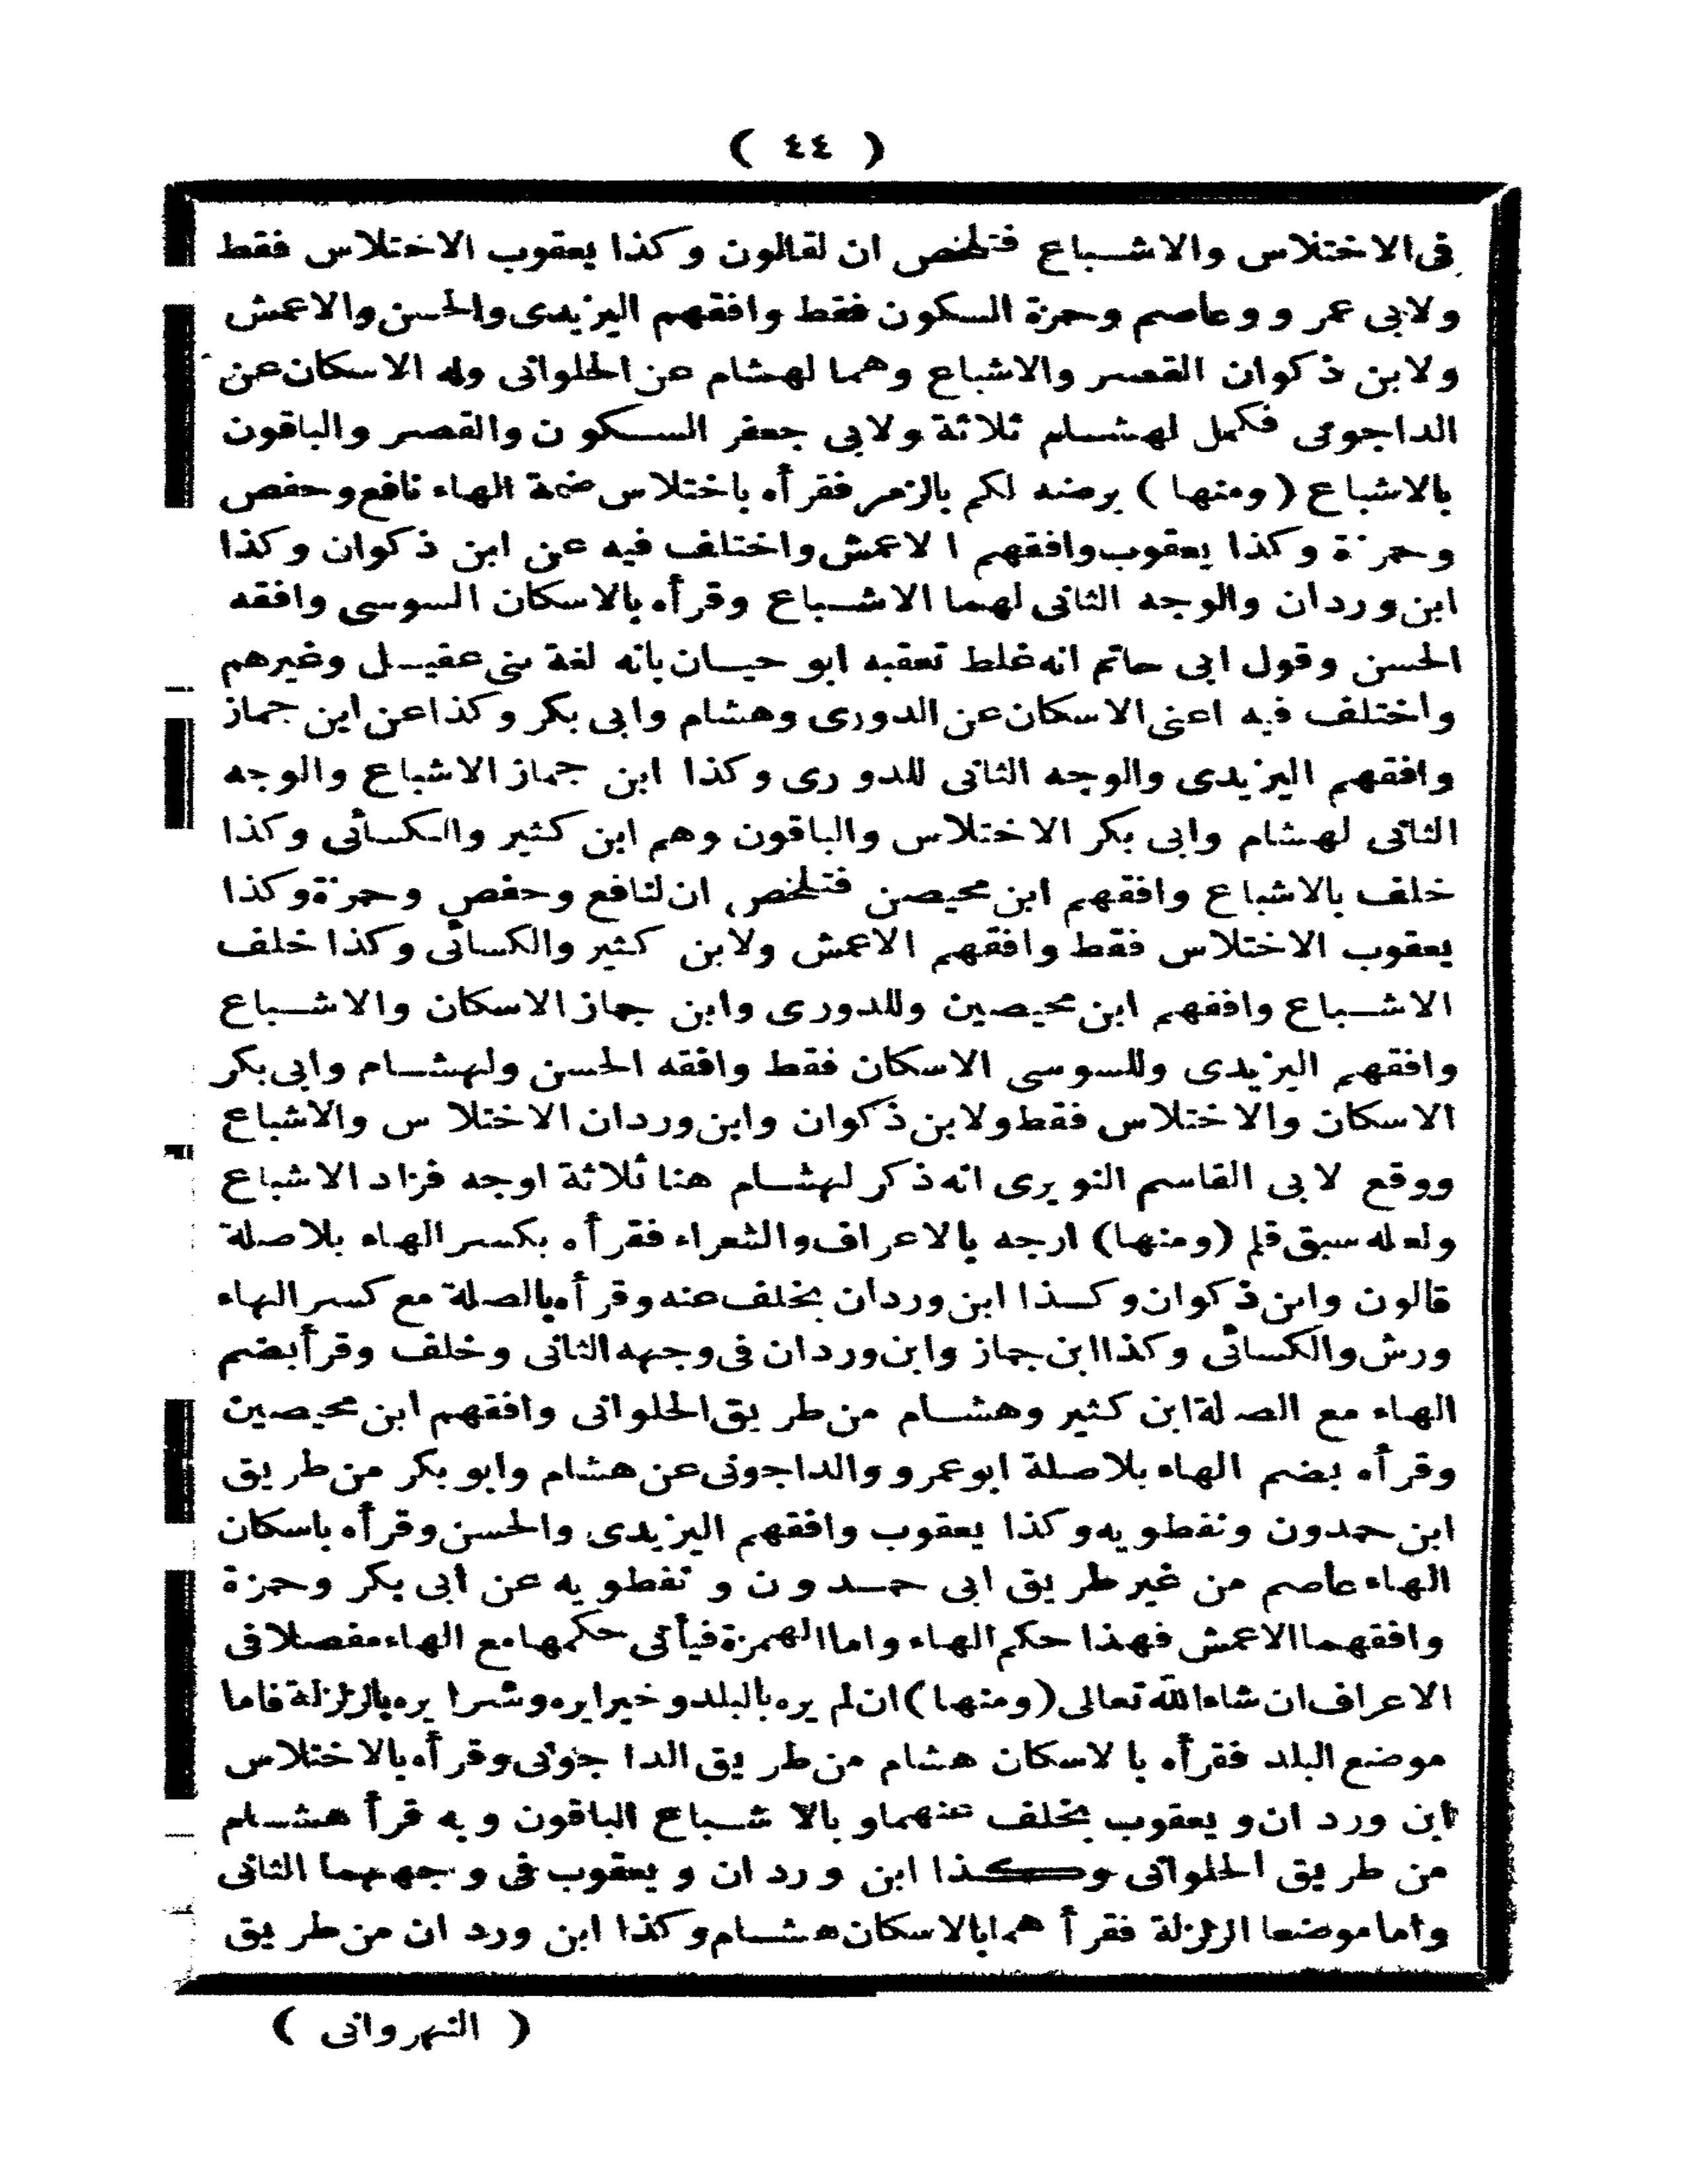 ( ٤٤ )
فى الاختلاس والاشباع فتلخص ان لقالون وكذا يعقوب الاختلاس فقط
ولابى عمرو وعاصم وحمزة السكون فقط وافقهم اليزيدى والحسن والاعمش
ولابن ذكوان القصر والاشباع وهما لهشام عن الحلوانى وله الاسكان عن
الداجونى فكمل لهشام ثلاثة ولابى جعفر السكون والقصر والباقون
بالاشباع (ومنها) يرضه لكم بالزمر فقرأه باختلاس ضمة الهاء نافع وحفص
وحمزة وكذا يعقوب وافقهم الاعمش واختلف فيه عن ابن ذكوان وكذا
ابن وردان والوجه الثانى لهما الاشباع وقرأه بالاسكان السوسى وافقه
الحسن وقول ابى حاتم انه غلط تعقبه ابو حيان بانه لغة بنى عقيل وغيرهم
واختلف فيه اعنى الاسكان عن الدورى وهشام وابى بكر وكذا عن ابن جماز
وافقهم اليزيدى والوجه الثانى للدورى وكذا ابن جماز الاشباع والوجه
الثانى لهشام وابى بكر الاختلاس والباقون وهم ابن كثير والكسائى وكذا
خلف بالاشباع وافقهم ابن محيصن فتلخص ان لنافع وحفص وحمزة وكذا
يعقوب الاختلاس فقط وافقهم الاعمش ولابن كثير والكسائى وكذا خلف
الاشباع وافقهم ابن محيصين وللدورى وابن جماز الاسكان والاشباع
وافقهم اليزيدى وللسوسى الاسكان فقط وافقه الحسن ولهشام وابى بكر
الاسكان والاختلاس فقط ولابن ذكوان وابن وردان الاختلاس والاشباع
ووقع لابى القاسم النويرى انه ذكر لهشام هنا ثلاثة اوجه فزاد الاشباع
ولعله سبق قلم (ومنها) ارجه بالاعراف والشعراء فقرأه بكسر الهاء بلا صلة
قالون وابن ذكوان وكذا ابن وردان بخلف عنه وقرأه بالصلة مع كسر الهاء
ورش والكسائى وكذا ابن جماز وابن وردان فى وجهه الثانى وخلف وقرأ بضم
الهاء مع الصلة ابن كثير وهشام من طريق الحلوانى وافقهم ابن محيصين
وقرأه بضم الهاء بلا صلة ابو عمرو والداجونى عن هشام وابو بكر من طريق
ابن حمدون ونفطويه وكذا يعقوب وافقهم اليزيدى والحسن وقرأه باسكان
الهاء عاصم من غير طريق ابى حمدون ونفطويه عن ابى بكر وحمزة
وافقهما الاعمش فهذا حكم الهاء واما الهمزة فيأتى حكمها مع الهاء مفصلا فى
الاعراف ان شاء الله تعالى (ومنها) ان لم يره بالبلد وخيرا يره وشرا يره بالزلزلة فاما
موضع البلد فقرأه بالاسكان هشام من طريق الداجونى وقرأه بالاختلاس
ابن وردان ويعقوب بخلف عنهما وبالاشباع الباقون وبه قرأ هشام
من طريق الحلوانى وكذا ابن وردان ويعقوب فى وجههما الثانى
واما موضعا الزلزلة فقرأهما بالاسكان هشام وكذا ابن وردان من طريق
( النهروانى )